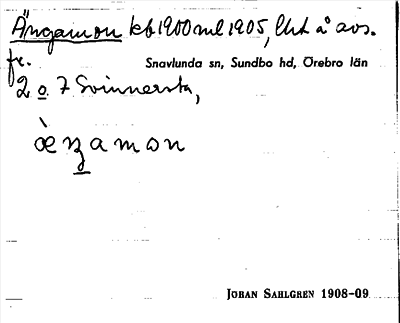 Ängamon kb 1900 ml 1905, Urt å avs.
fr. Snavlunda sn, Sundbo hd, Örebro län
2 o. 7 Svinnersta,
æ̀ŋamon
JOHAN SAHLGREN 1908-09